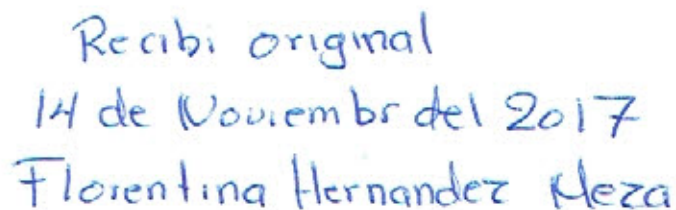 Recibi original
14 de Noviembr del 2017
Florentina Hernandez Meza